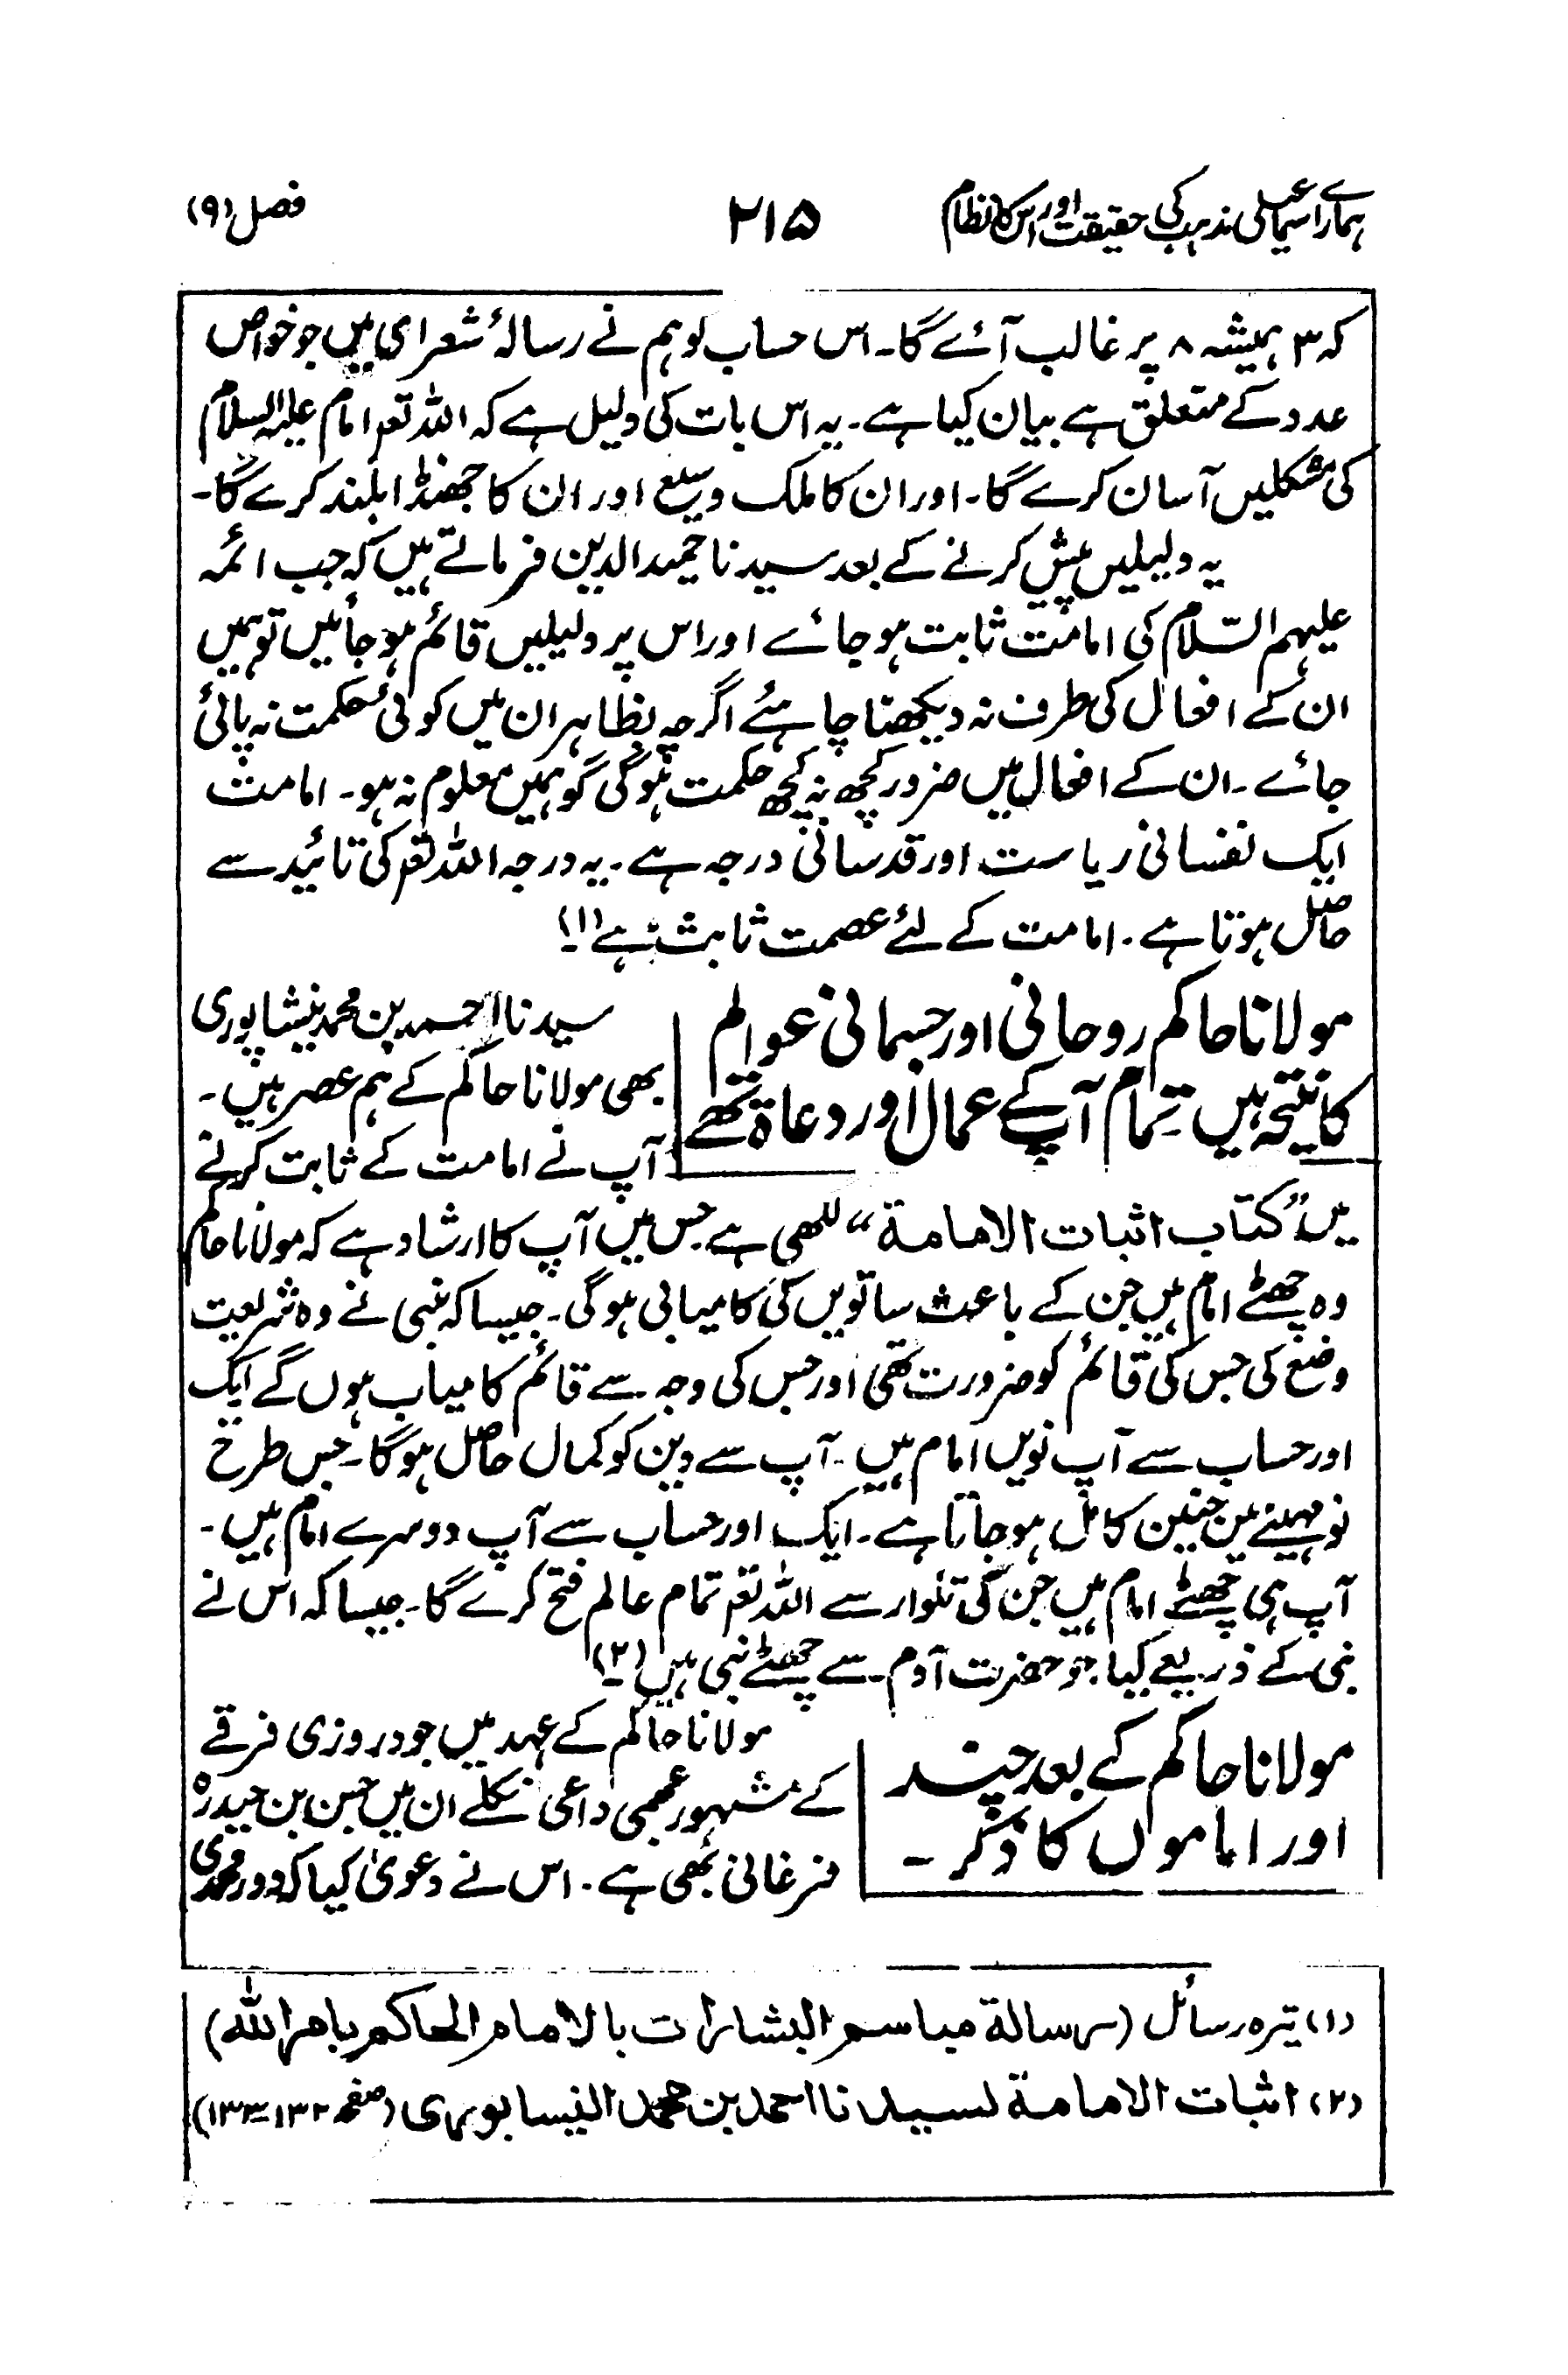 ہمارے اسماعیلی مذہب کی حقیقت اور اس کا نظام ۲۱۵ فصل (۹)
کہ ۳ ہمیشہ ۸ پر غالب آئے گا۔ اس حساب کو ہم نے رسالۂ شعرای میں جو خواص
عدد کے متعلق ہے بیان کیا ہے۔ یہ اس بات کی دلیل ہے کہ اللہ تعم امام علیہ السلام
کی مشکلیں آسان کرے گا۔ اور ان کا ملک وسیع اور ان کا جھنڈا بلند کرے گا۔
یہ دلیلیں پیش کرنے کے بعد سیدنا حمید الدین فرماتے ہیں کہ جب ائمہ
علیہم السّلام کی امامت ثابت ہو جائے اور اس پر دلیلیں قائم ہو جائیں تو ہمیں
ان کے افعال کی طرف نہ دیکھنا چاہئے اگرچہ بظاہر ان میں کوئی حکمت نہ پائی
جائے۔ ان کے افعال میں ضرور کچھ نہ کچھ حکمت ہوگی گو ہمیں معلوم نہ ہو۔ امامت
ایک نفسانی ریاست اور قدسانی درجہ ہے۔ یہ درجہ اللہ تعم کی تائید سے
حاصل ہوتا ہے۔ امامت کے لئے عصمت ثابت ہے (۱)
مولانا حاکم روحانی اور جسمانی عوالم
کا نتیجہ ہیں تمام آپ کے عمال اور دعاۃ تھے
سیدنا احمد بن محمد نیشاپوری
بھی مولانا حاکم کے ہم عصر ہیں۔
آپ نے امامت کے ثابت کرنے
میں "کتاب اثبات الامامة" لکھی ہے جس میں آپ کا ارشاد ہے کہ مولانا حاکم
وہ چھٹے امام ہیں جن کے باعث ساتویں کی کامیابی ہوگی۔ جیسا کہ نبی نے وہ شریعت
وضع کی جس کی قائم کو ضرورت تھی اور جس کی وجہ سے قائم کامیاب ہوں گے ایک
اور حساب سے آپ نویں امام ہیں۔ آپ سے دین کو کمال حاصل ہوگا۔ جس طرح
نو مہینے میں جنین کامل ہو جاتا ہے۔ ایک اور حساب سے آپ دوسرے امام ہیں۔
آپ ہی چھٹے امام ہیں جن کی تلوار سے اللہ تعم تمام عالم فتح کرے گا۔ جیسا کہ اس نے
نبی کے ذریعے کیا جو حضرت آدم سے چھٹے نبی ہیں (۲)
مولانا حاکم کے بعد چند
اور اماموں کا ذکر۔
مولانا حاکم کے عہد میں جو دروزی فرقے
کے مشہور عجمی داعی نکلے ان میں حسن بن حیدرہ
فرغانی بھی ہے۔ اس نے دعویٰ کیا کہ دور محمدی
(۱) تیرہ رسائل (رسالة مباسم البشارات بالامام الحاکم بامر اللہ)
(۲) اثبات الامامة لسیدنا احمد بن محمد النیسابوری (صفحہ ۱۳۲-۱۳۳)